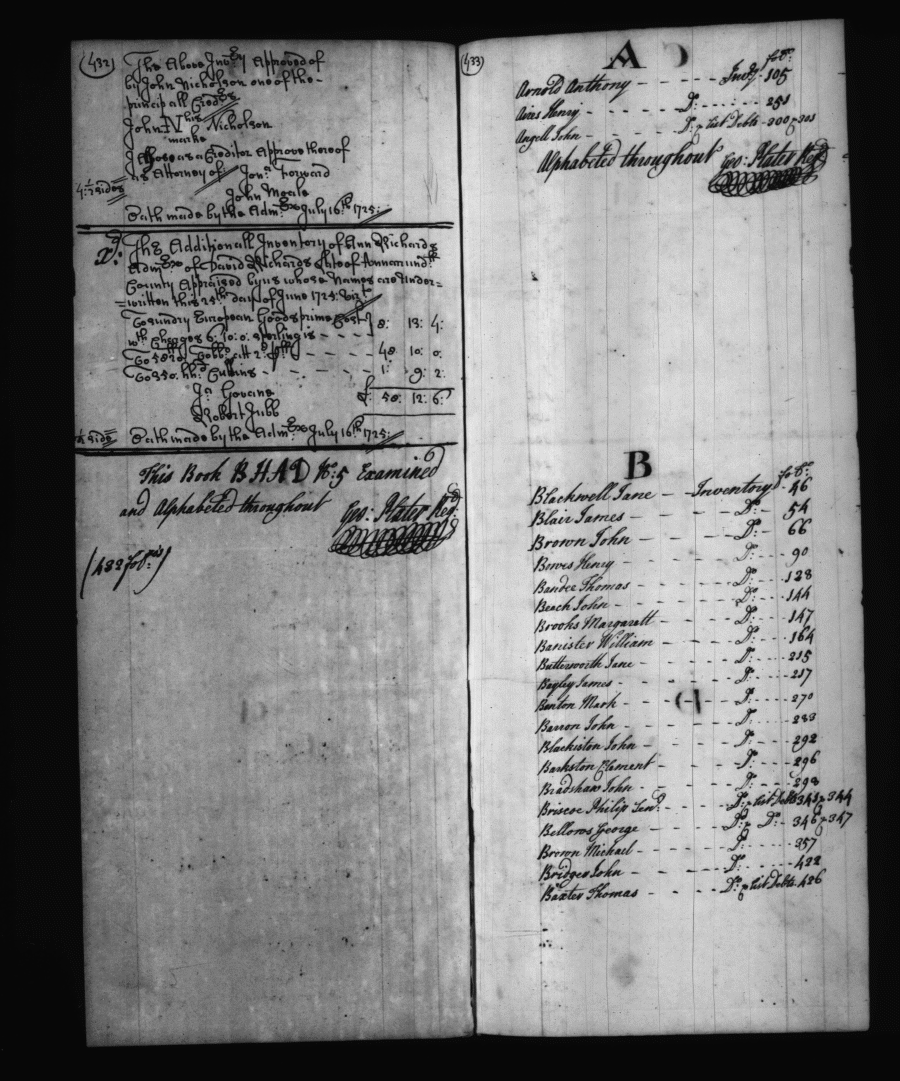 (432)
The Above Inv:ry Approved of
by John Nicholson one of the
principall Cred:rs
John N his Nicholson
marke
I Also as a Creditor Approve thereof
as Attorney of Jon:a Forward
John Moale
4:½ sides
Oath made by the Adm:rx July 16:th 1725:
The Additionall Inventory of Ann Richards
Adm:rx of David Richards late of Annarund:ll
County Appraised by us whose Names are Under=
=written this 25:th day of June 1725: Viz:t
To sundry European Goods prime Cost
w:th Charges 6: 10: 0: sterling is 8: 13: 4:
To Tobb:o att 2:d 48 10: 0:
1: 9: 2:
Ja: Govane £: 58: 12: 6:
Robert Jubb
side Oath made by the Adm:rx July 16:th 1725:
This Book Examined
and Alphabeted throughout
Geo: Plater Reg:r
(432 fol:os)
(433)
A
fol:o
Arnold Anthony - - - - - Inv:ry 105
Aires Henry - - - - - D:o - - - - 251
Angell John - - - - D:o & List Debts - 300 & 301
Alphabeted throughout Geo: Plater Reg:r
B
fol:o
Blackwell Jane - - Inventory - 46
Blair James - - - - - D:o - - 54
Brown John - - - - - D:o - - 66
Bowes Henry - - - - - D:o - - - 90
Bandee Thomas - - - - - D:o - - - 128
Beach John - - - - - D:o - - - 144
Brooks Margarett - - - - D:o - - - 147
Banister William - - - - D:o - - - 164
Butterworth Jane - - - - D:o - - - 215
Bayley James - - - - - D:o - - - 217
Benton Mark - - - - - D:o - - - 270
Barron John - - - - - D:o - - - 283
Blackiston John - - - - D:o - - - 292
Barkston Clement - - - - D:o - - - 296
Bradshaw John - - - - - D:o - - - 298
Briscoe Philip Sen:r - - - D:o & List Debts 343 & 344
Bellows George - - - - D:o & D:o - 346 & 347
Brown Michael - - - - - D:o - - - 357
Bridger John - - - - - D:o - - - 422
Baxter Thomas - - - - D:o & List Debts 426